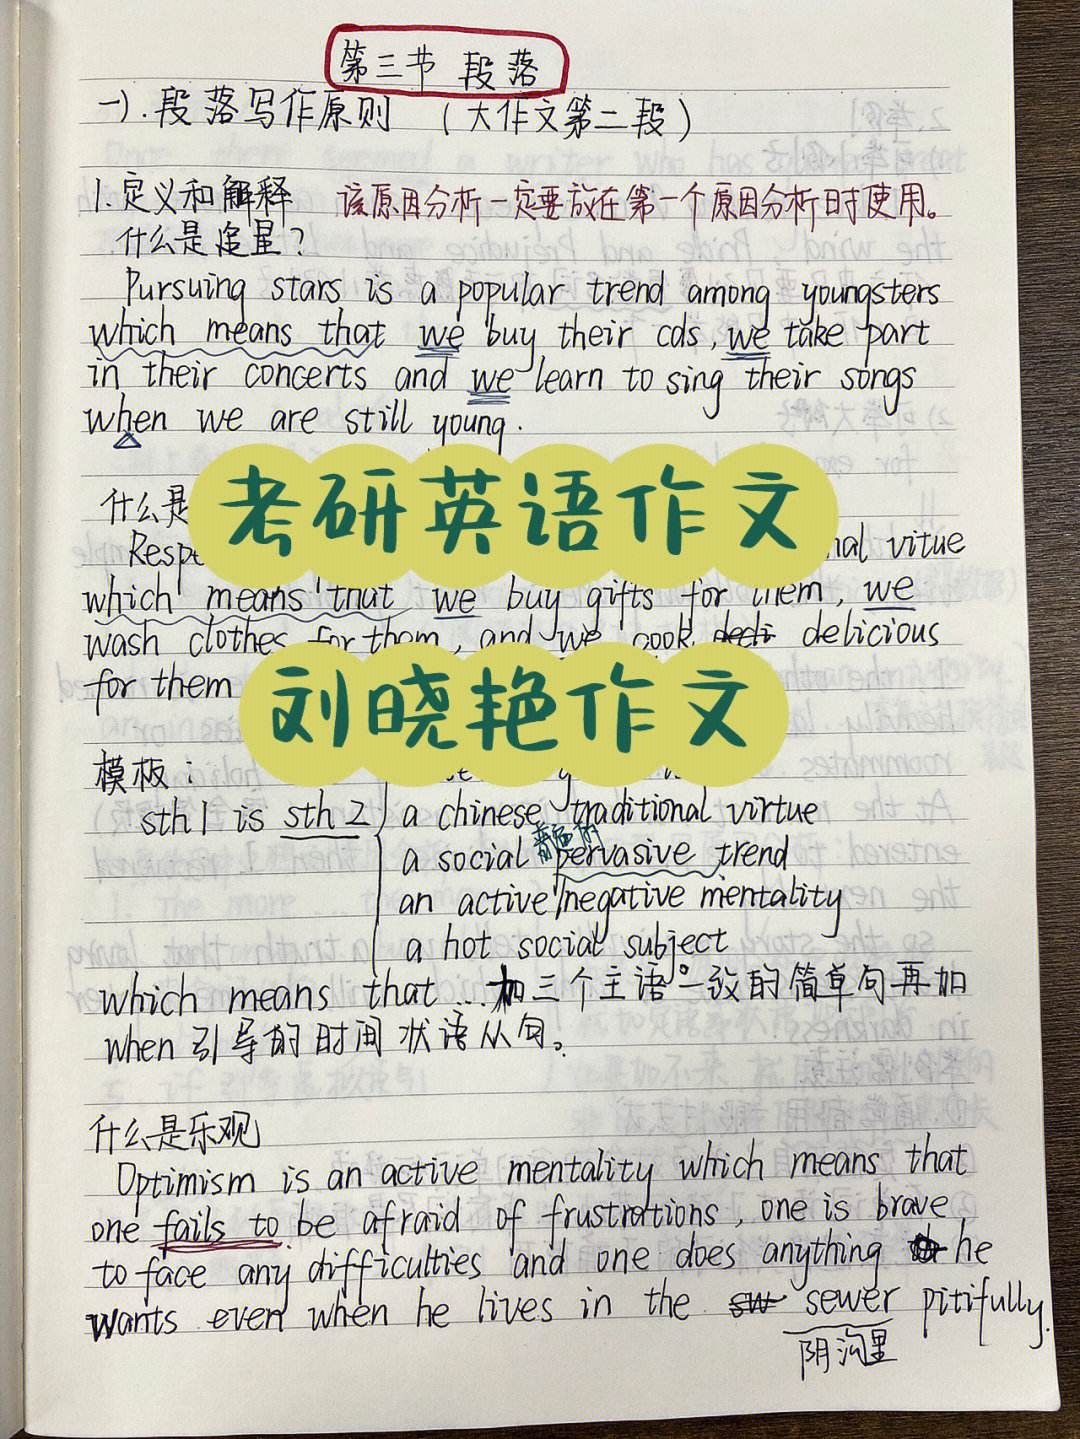 第三节 段落
一).段落写作原则 (大作文第二段)
1.定义和解释 该原因分析一定要放在第一个原因分析时使用。
什么是追星?
Pursuing stars is a popular trend among youngsters
which means that we buy their cds, we take part
in their concerts and we learn to sing their songs
when we are still young.
考研英语作文
什么是
Respe nal vitue
which means that we buy gifts for them, we
wash clothes for them, and we cook delicious
for them
刘晓艳作文
模板:
sth1 is sth2 a chinese traditional virtue
普遍的
a social pervasive trend
an active/negative mentality
a hot social subject
which means that...加三个主语一致的简单句再加
when引导的时间状语从句。
什么是乐观
Optimism is an active mentality which means that
one fails to be afraid of frustrations, one is brave
to face any difficulties and one does anything he
wants even when he lives in the sewer pitifully.
阴沟里